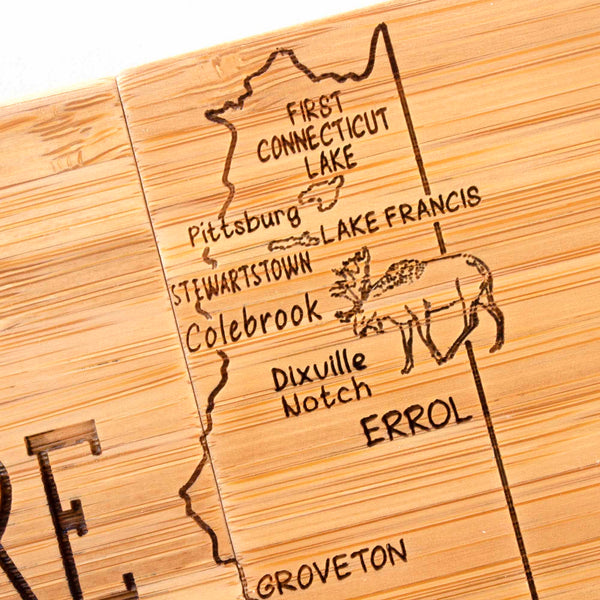 FIRST
CONNECTICUT
LAKE
Pittsburg
LAKE FRANCIS
STEWARTSTOWN
Colebrook
Dixville
Notch
ERROL
RE
GROVETON